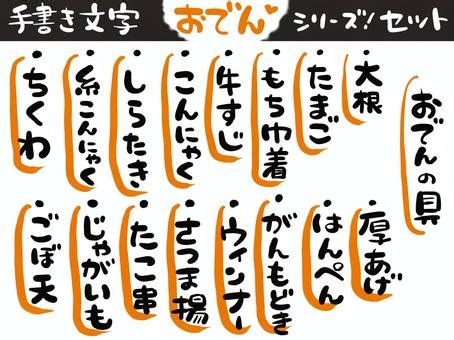 手書き文字 おでん シリーズ! セット
おでんの具
・大根
・たまご
・もち巾着
・牛すじ
・こんにゃく
・しらたき
・糸こんにゃく
・ちくわ
・厚あげ
・はんぺん
・がんもどき
・ウィンナー
・さつま揚
・たこ串
・じゃがいも
・ごぼ天